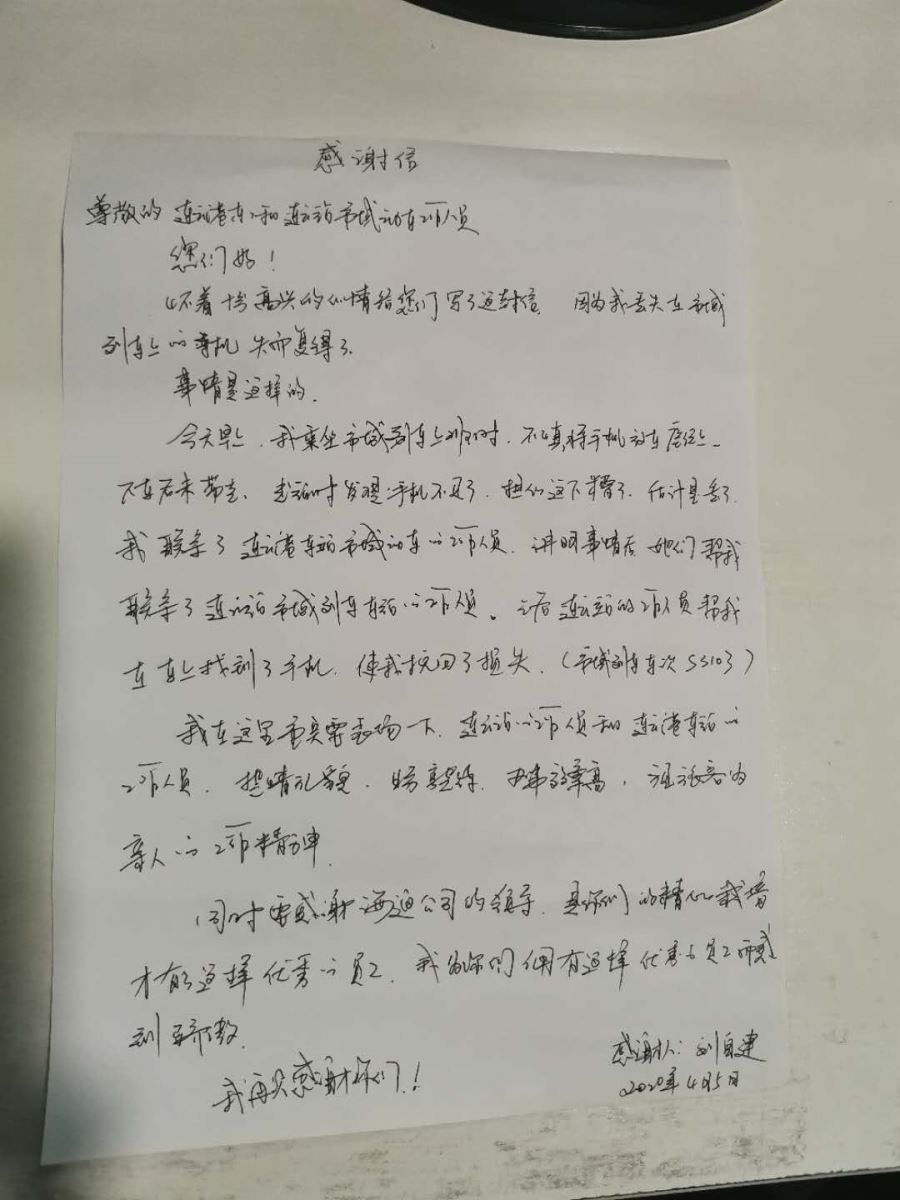 感谢信
尊敬的 连云港东和连云站市域动车工作人员
您们好！
怀着十分高兴的心情给您们写了这封信，因为我丢失在市域
列车上的手机失而复得了.
事情是这样的.
今天早上，我乘坐市域列车上班时，不慎将手机
下车后未带走、出站时发现手机不见了，想们这下糟了，估计是丢了.
我联系了连云港东站市域动车的工作人员，讲明事情后她们帮我
联系了连云站市域列车车站的工作人员。之后连云站的工作人员帮我
在车上找到了手机，使我挽回了损失.（市域列车车次S5103）
我在这里重点需表扬一下，连云站的工作人员和连云港东站的
工作人员，热情礼貌，业务熟练，办事效率高，视旅客为
亲人的工作精神.
同时要感谢海通公司的领导，是你们的精心栽培
才有了这样优秀的员工，我为你们拥有这样优秀的员工而感
到骄傲.
我再次感谢你们！
感谢人：刘自建
2020年4月5日